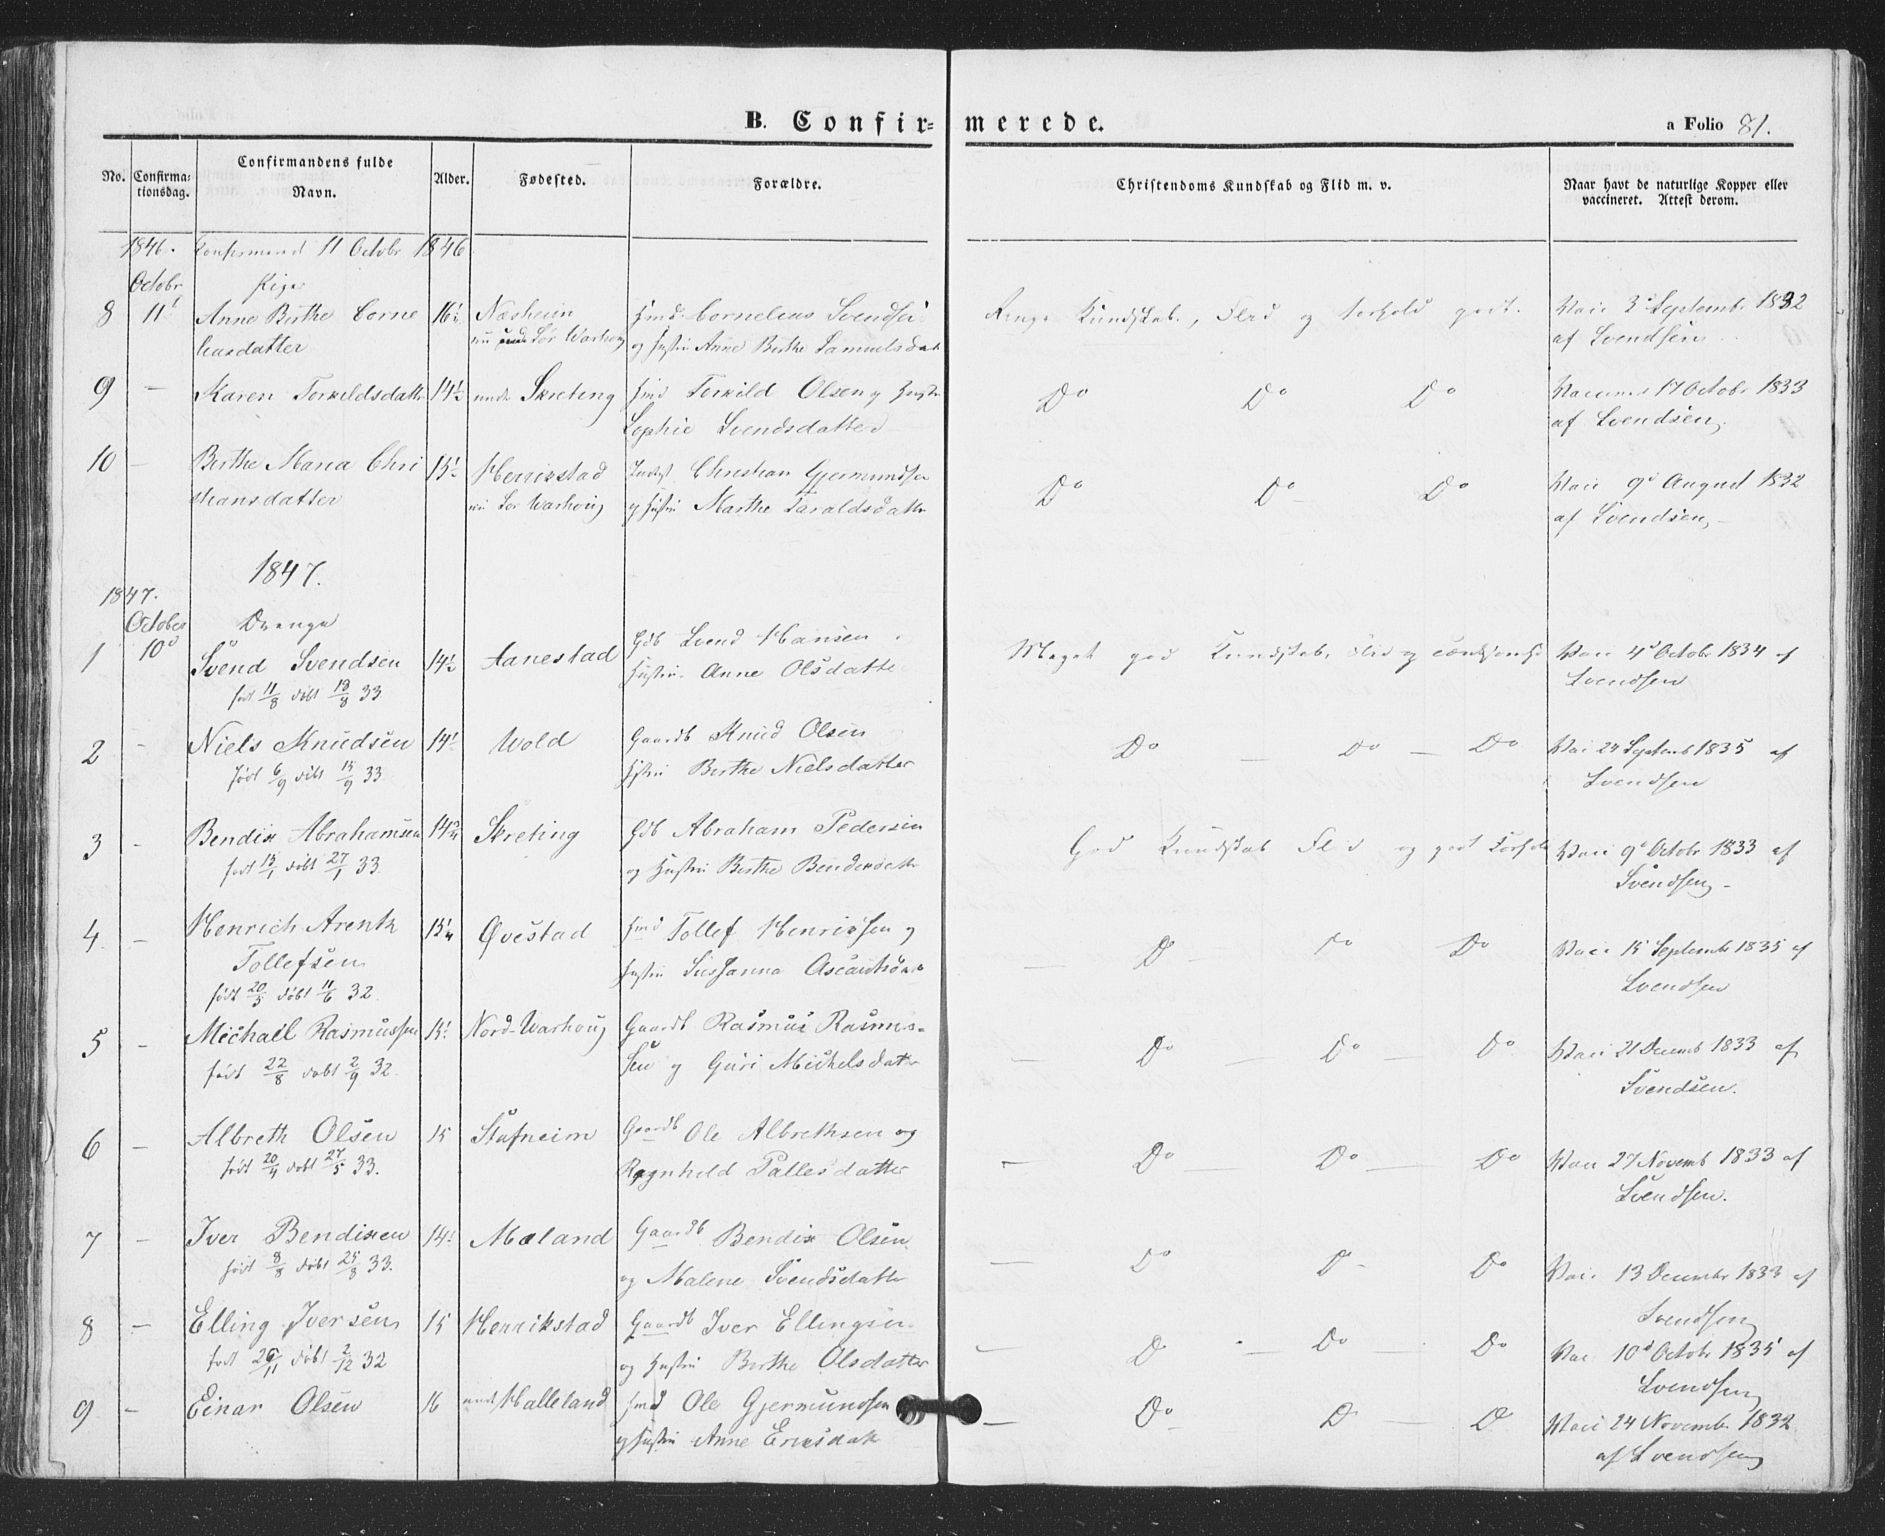 B. Confir=merede.
a Folio 81.
No. Confirma=tionsdag. Confirmandens fulde Navn. Alder. Fødested. Forældre. Christendoms Kundskab og Flid m. v. Naar havt de naturlige Kopper eller vaccineret. Attest derom.
1846. Confirmered 11 Octobr 1846
Octobr Pige
8 11 Anne Birthe Corne 16½ Næsheim Hmd. Cornelius Svendsen Kundskab, Flid og Forhold godt. Vacc 3 Septembr 1832
liusdatter nu Sør Warhoug og Hustru Anne Berthe Samuelsdatt af Svendsen
9 — Karen Torkildsdatter 14½ under Skreting Hmd Torkild Olsen og Hustru Do Do Do Vaccineret 17 Octobr 1833
Sophie Svendsdatter af Svendsen
10 — Berthe Maria Chri 15½ Henrikstad Christian Gjermundsen Do Do Do Vacc 9 August 1832
stiansdatter nu Sør Warhoug og Hustru Marthe Taraldsdatter af Svendsen
1847.
1847.
October Drenge
1 10d Svend Svendsen 14½ Aanestad Gdb Svend Hansen Meget god Kundskab, Flid og Vacc 4 Octobr 1834 af
født 11/8 døbt 18/8 33 Hustru Anne Olsdatter Svendsen
2 - Niels Knudsen 14½ Wold Gaardb Knud Olsen Do — Do — Do Vacc 24 Septemb 1835 af
født 6/9 døbt 15/9 33 Hustru Berthe Nielsdatter Svendsen
3 - Bendix Abrahamsen Skreting Gdb Abraham Pedersen God Kundskab Flid og godt Forhold Vacc 9 Octobr 1833 af
født 13/1 døbt 27/1 33 og Hustru Berthe Svendsen
4 — Henrich Arentz 15¼ Øvestad Hmd Tollef Henrichsen og — Do Do Do Vacc 15 Septembr 1835 af
Tollefsen Hustru Susanna Svendsen
født 20/5 døbt 11/6 32.
5 - Michael Rasmussen Nord-Warhoug Gaardb Rasmus Rasmus= — Do — Do — Do Vacc 21 Decemb 1833 af
født 22/8 døbt 2/9 32 sen og Guri Michelsdatter Svendsen.
6 — Albreth Olsen 15 Stafneim Gaardb Ole Albrethsen og — Do — Do — Do Vacc 27 Novemb 1833 af
født 20/4 døbt 27/5 33. Ragnhild Pallesdatter Svendsen.
7 — Iver Bendixen Mæland Gaardb Bendix Olsen — Do Do Do Vacc 13 Decembr 1833 af
født 8/8 døbt 25/8 33. og Malene Svendsdatter Svendsen
8 — Elling Iversen 15 Henrikstad Gaardb Iver Ellingsen — Do Do Do Vac 10d Octobr 1835 af
født 26/11 døbt 2/12 32 og Hustru Berthe Olsdatter Svendsen
9 — Einar Olsen 16 under Halleland Hmd Ole Gjermundsen — Do — Do — Do Vacc 24 Novembr 1832
og Hustru Anne af Svendsen